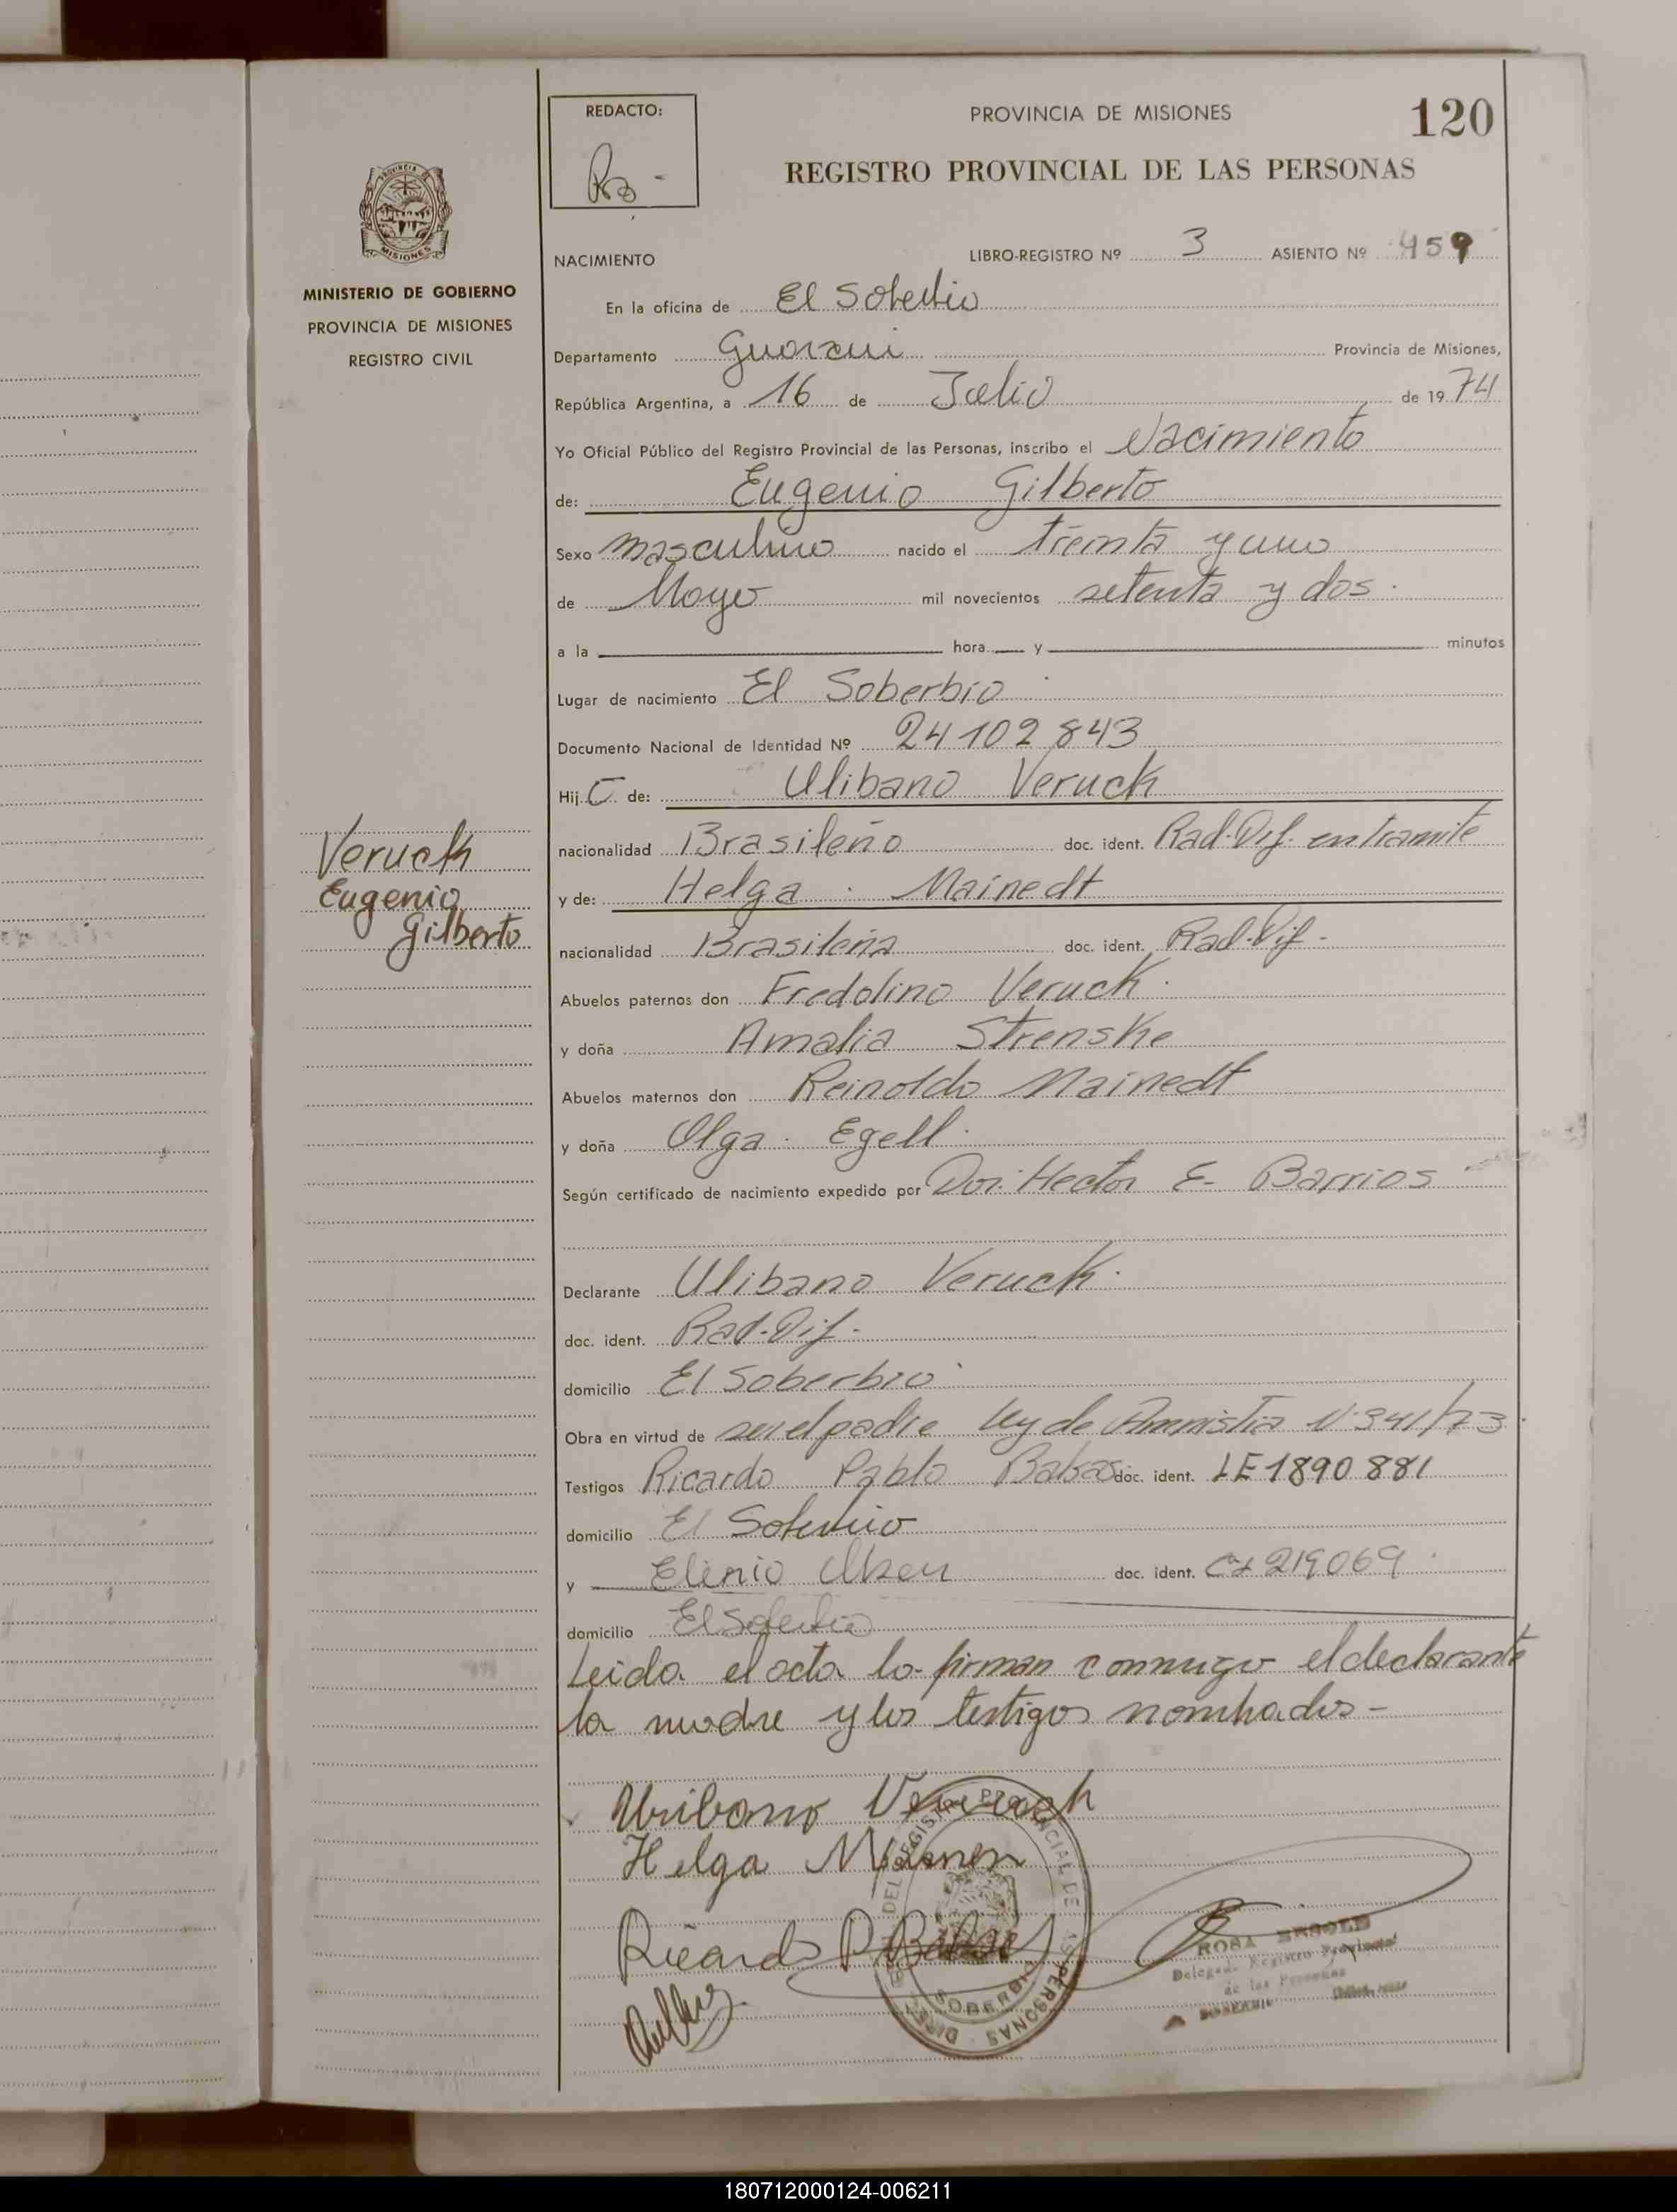 REDACTO:
PROVINCIA DE MISIONES
120
REGISTRO PROVINCIAL DE LAS PERSONAS
PROVINCIA DE
MISIONES
MINISTERIO DE GOBIERNO
PROVINCIA DE MISIONES
REGISTRO CIVIL
NACIMIENTO
LIBRO-REGISTRO Nº 3 ASIENTO Nº 459
En la oficina de El Soberbio
Departamento Guarani Provincia de Misiones,
República Argentina, a 16 de Julio de 1974
Yo Oficial Público del Registro Provincial de las Personas, inscribo el Nacimiento
de: Eugenio Gilberto
Sexo masculino nacido el treinta y uno
de Mayo mil novecientos setenta y dos.
a la hora y minutos
Lugar de nacimiento El Soberbio
Documento Nacional de Identidad Nº 24102843
Hijo de: Ulibano Veruck
nacionalidad Brasileño doc. ident. Rad. Dif. en tramite
y de: Helga Mainedt
nacionalidad Brasileña doc. ident. Rad. Dif.-
Abuelos paternos don Fredolino Veruck.
y doña Amalia Strenske
Abuelos maternos don Reinoldo Mainedt
y doña Olga Egell.
Según certificado de nacimiento expedido por Dor. Hector E. Barrios
Veruck
Eugenio
Gilberto
Declarante Ulibano Veruck.
doc. ident. Rad. Dif.-
domicilio El Soberbio
Obra en virtud de ser el padre Ley de Amnistia N. 341/73.
Testigos Ricardo Pablo Balsas doc. ident. LE 1890881
domicilio El Soberbio
y Elinio doc. ident. 219069
domicilio El Soberbio
Leida el acta la firman conmigo el declarante
la madre y los testigos nombrados-
Uribano Veruck
Helga
Ricardo P
DIRECCION DEL REGISTRO PROVINCIAL DE LAS PERSONAS
SOBERBIO
ROSA
Delegada Registro Provincial
de las Personas
180712000124-006211